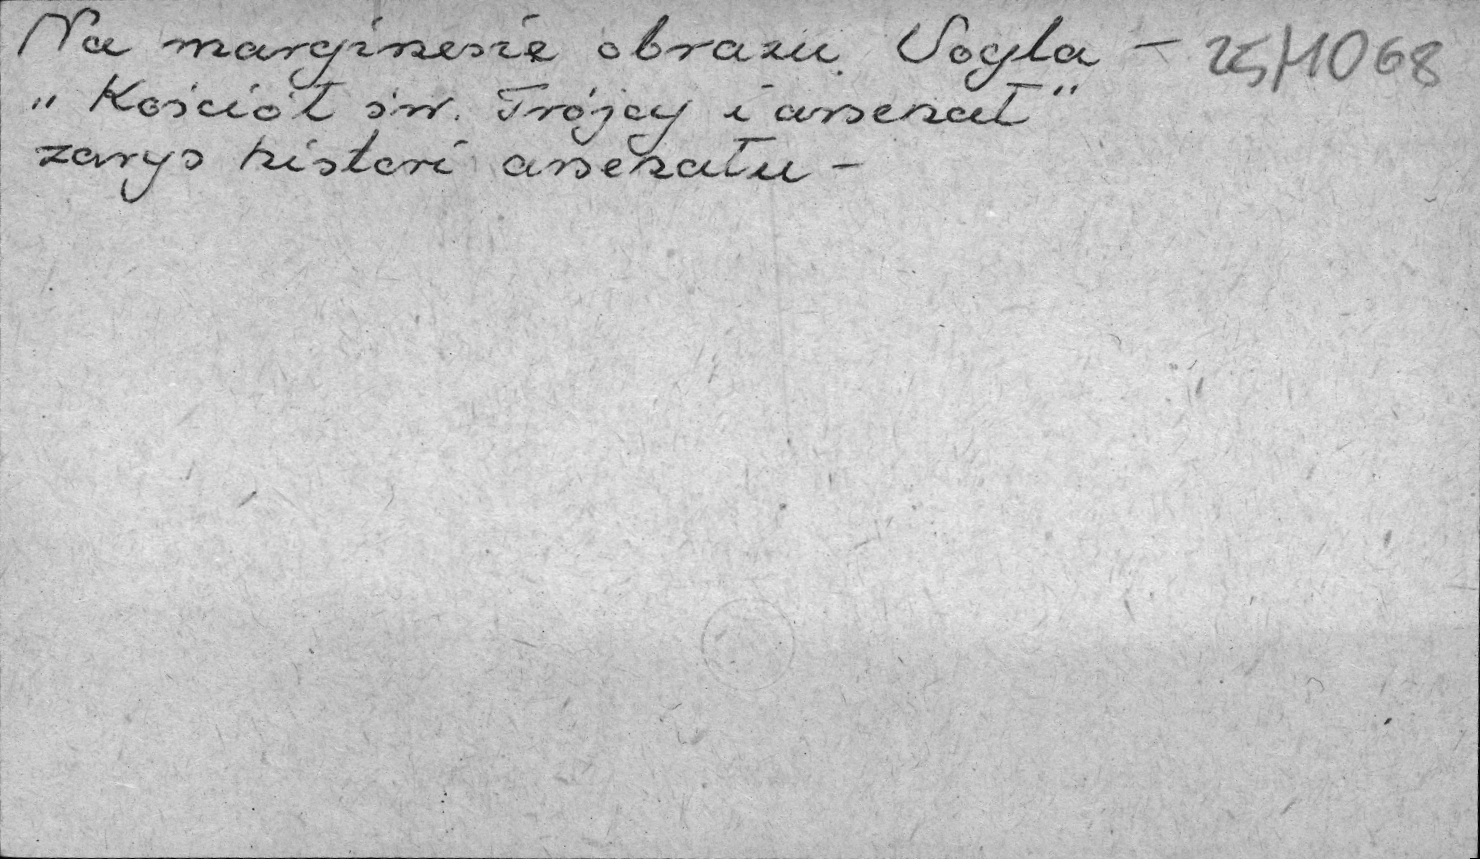 Na marginesie obrazu Vogla – 25/1068
„Kościół św. Trójcy i arsenał"
zarys histori arsenału –